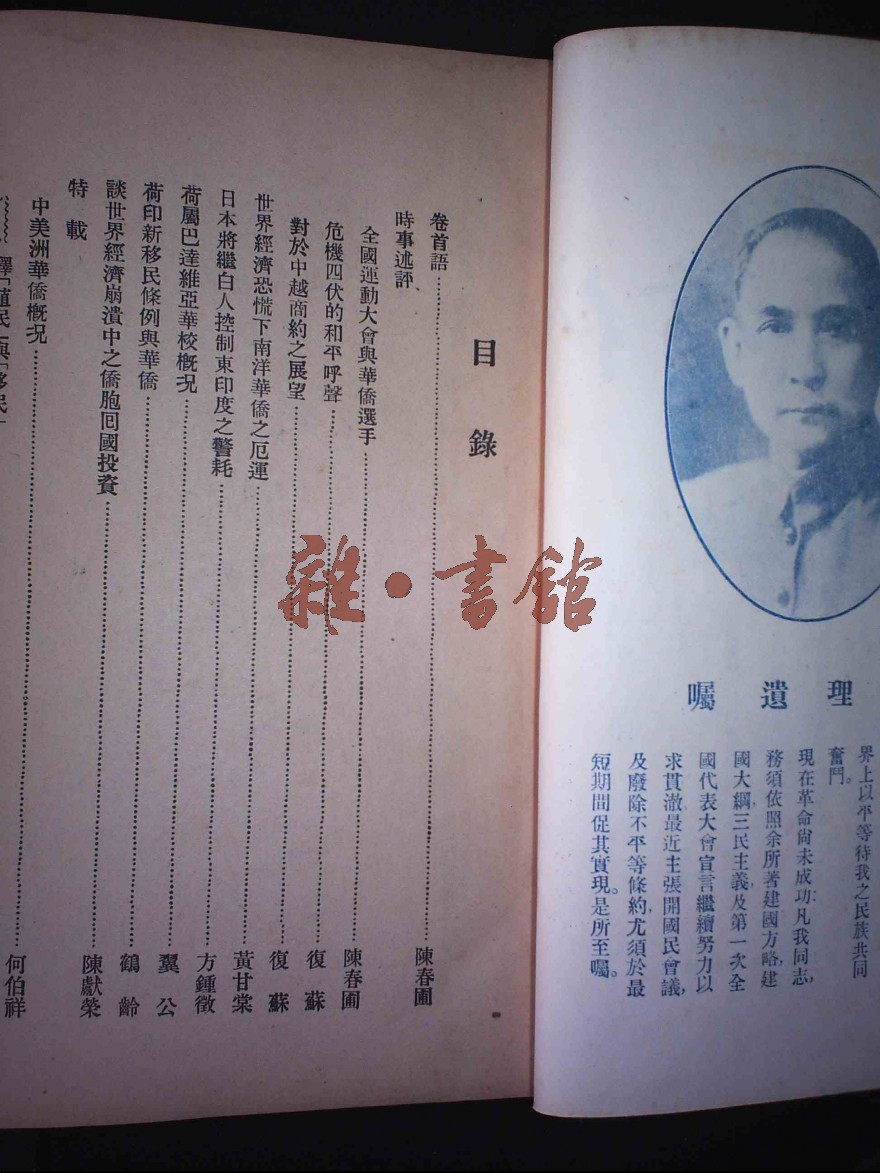 理遺囑
界上以平等待我之民族共同
奮鬥。
現在革命尙未成功凡我同志,
務須依照余所著建國方略,建
國大綱,三民主義,及第一次全
國代表大會宣言繼續努力以
求貫澈最近主張開國民會議,
及廢除不平等條約,尤須於最
短期間促其實現。是所至囑。
目錄
卷首語 陳春圃
時事述評
全國運動大會與華僑選手 陳春圃
危機四伏的和平呼聲 復蘇
對於中越商約之展望 復蘇
世界經濟恐慌下南洋華僑之厄運 黃甘棠
日本將繼白人控制東印度之警耗 方鍾徵
荷屬巴達維亞華校概況 翼公
荷印新移民條例與華僑 鶴齡
談世界經濟崩潰中之僑胞回國投資 陳獻榮
特載
中美洲華僑概况 何伯祥
釋「殖民」與「移民」
雜·書館